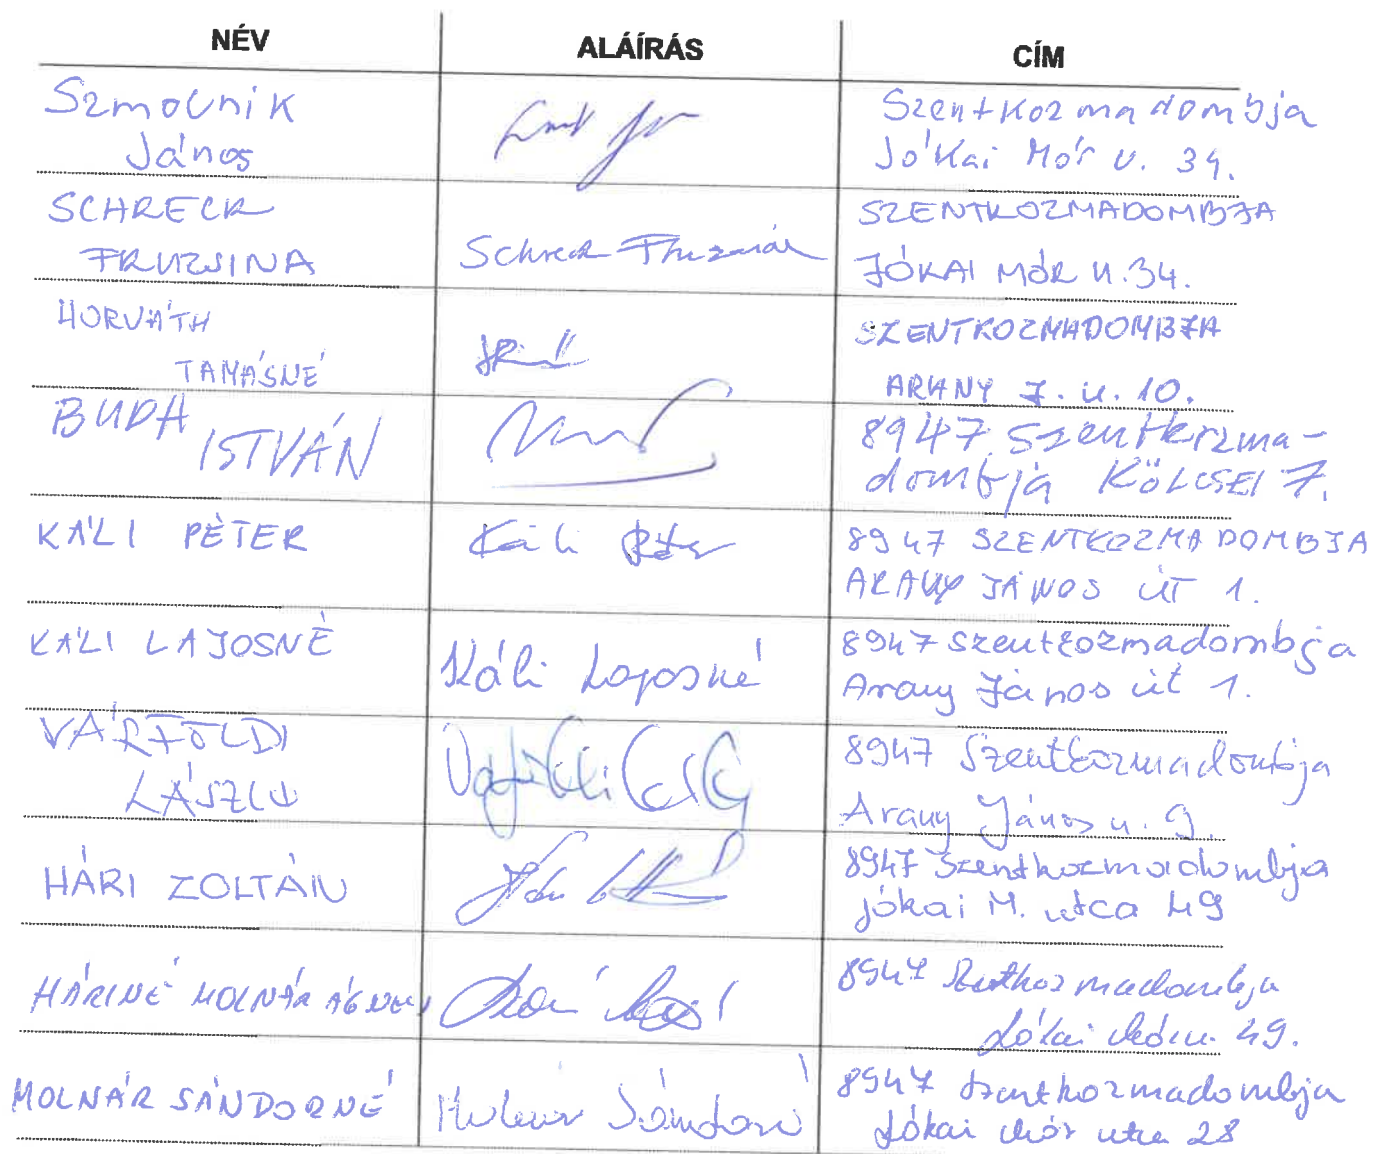 NÉV ALÁÍRÁS CÍM
Szmolnik Szentkozmadombja
János Jókai Mór u. 34.
SCHRECK SZENTKOZMADOMBJA
FRUZSINA Schreck Fruzsina JÓKAI MÓR U. 34.
HORVÁTH SZENTKOZMADOMBJA
TAMÁSNÉ ARANY J. u. 10.
BUDA 8947 Szentkozma-
ISTVÁN dombja KÖLCSEI 7.
KÁLI PÉTER Káli Péter 8947 SZENTKOZMADOMBJA
ARANY JÁNOS ÚT 1.
KÁLI LAJOSNÉ Káli Lajosné 8947 Szentkozmadombja
Arany János út 1.
VÁRFÖLDI 8947 Szentkozmadombja
LÁSZLÓ Arany János u. 9.
HÁRI ZOLTÁN 8947 Szentkozmadombja
Jókai M. utca 49
HÁRINÉ MOLNÁR ÁGNES 8947 Szentkozmadombja
Jókai Mór u. 49.
MOLNÁR SÁNDORNÉ Molnár Sándorné 8947 Szentkozmadombja
Jókai Mór utca 28